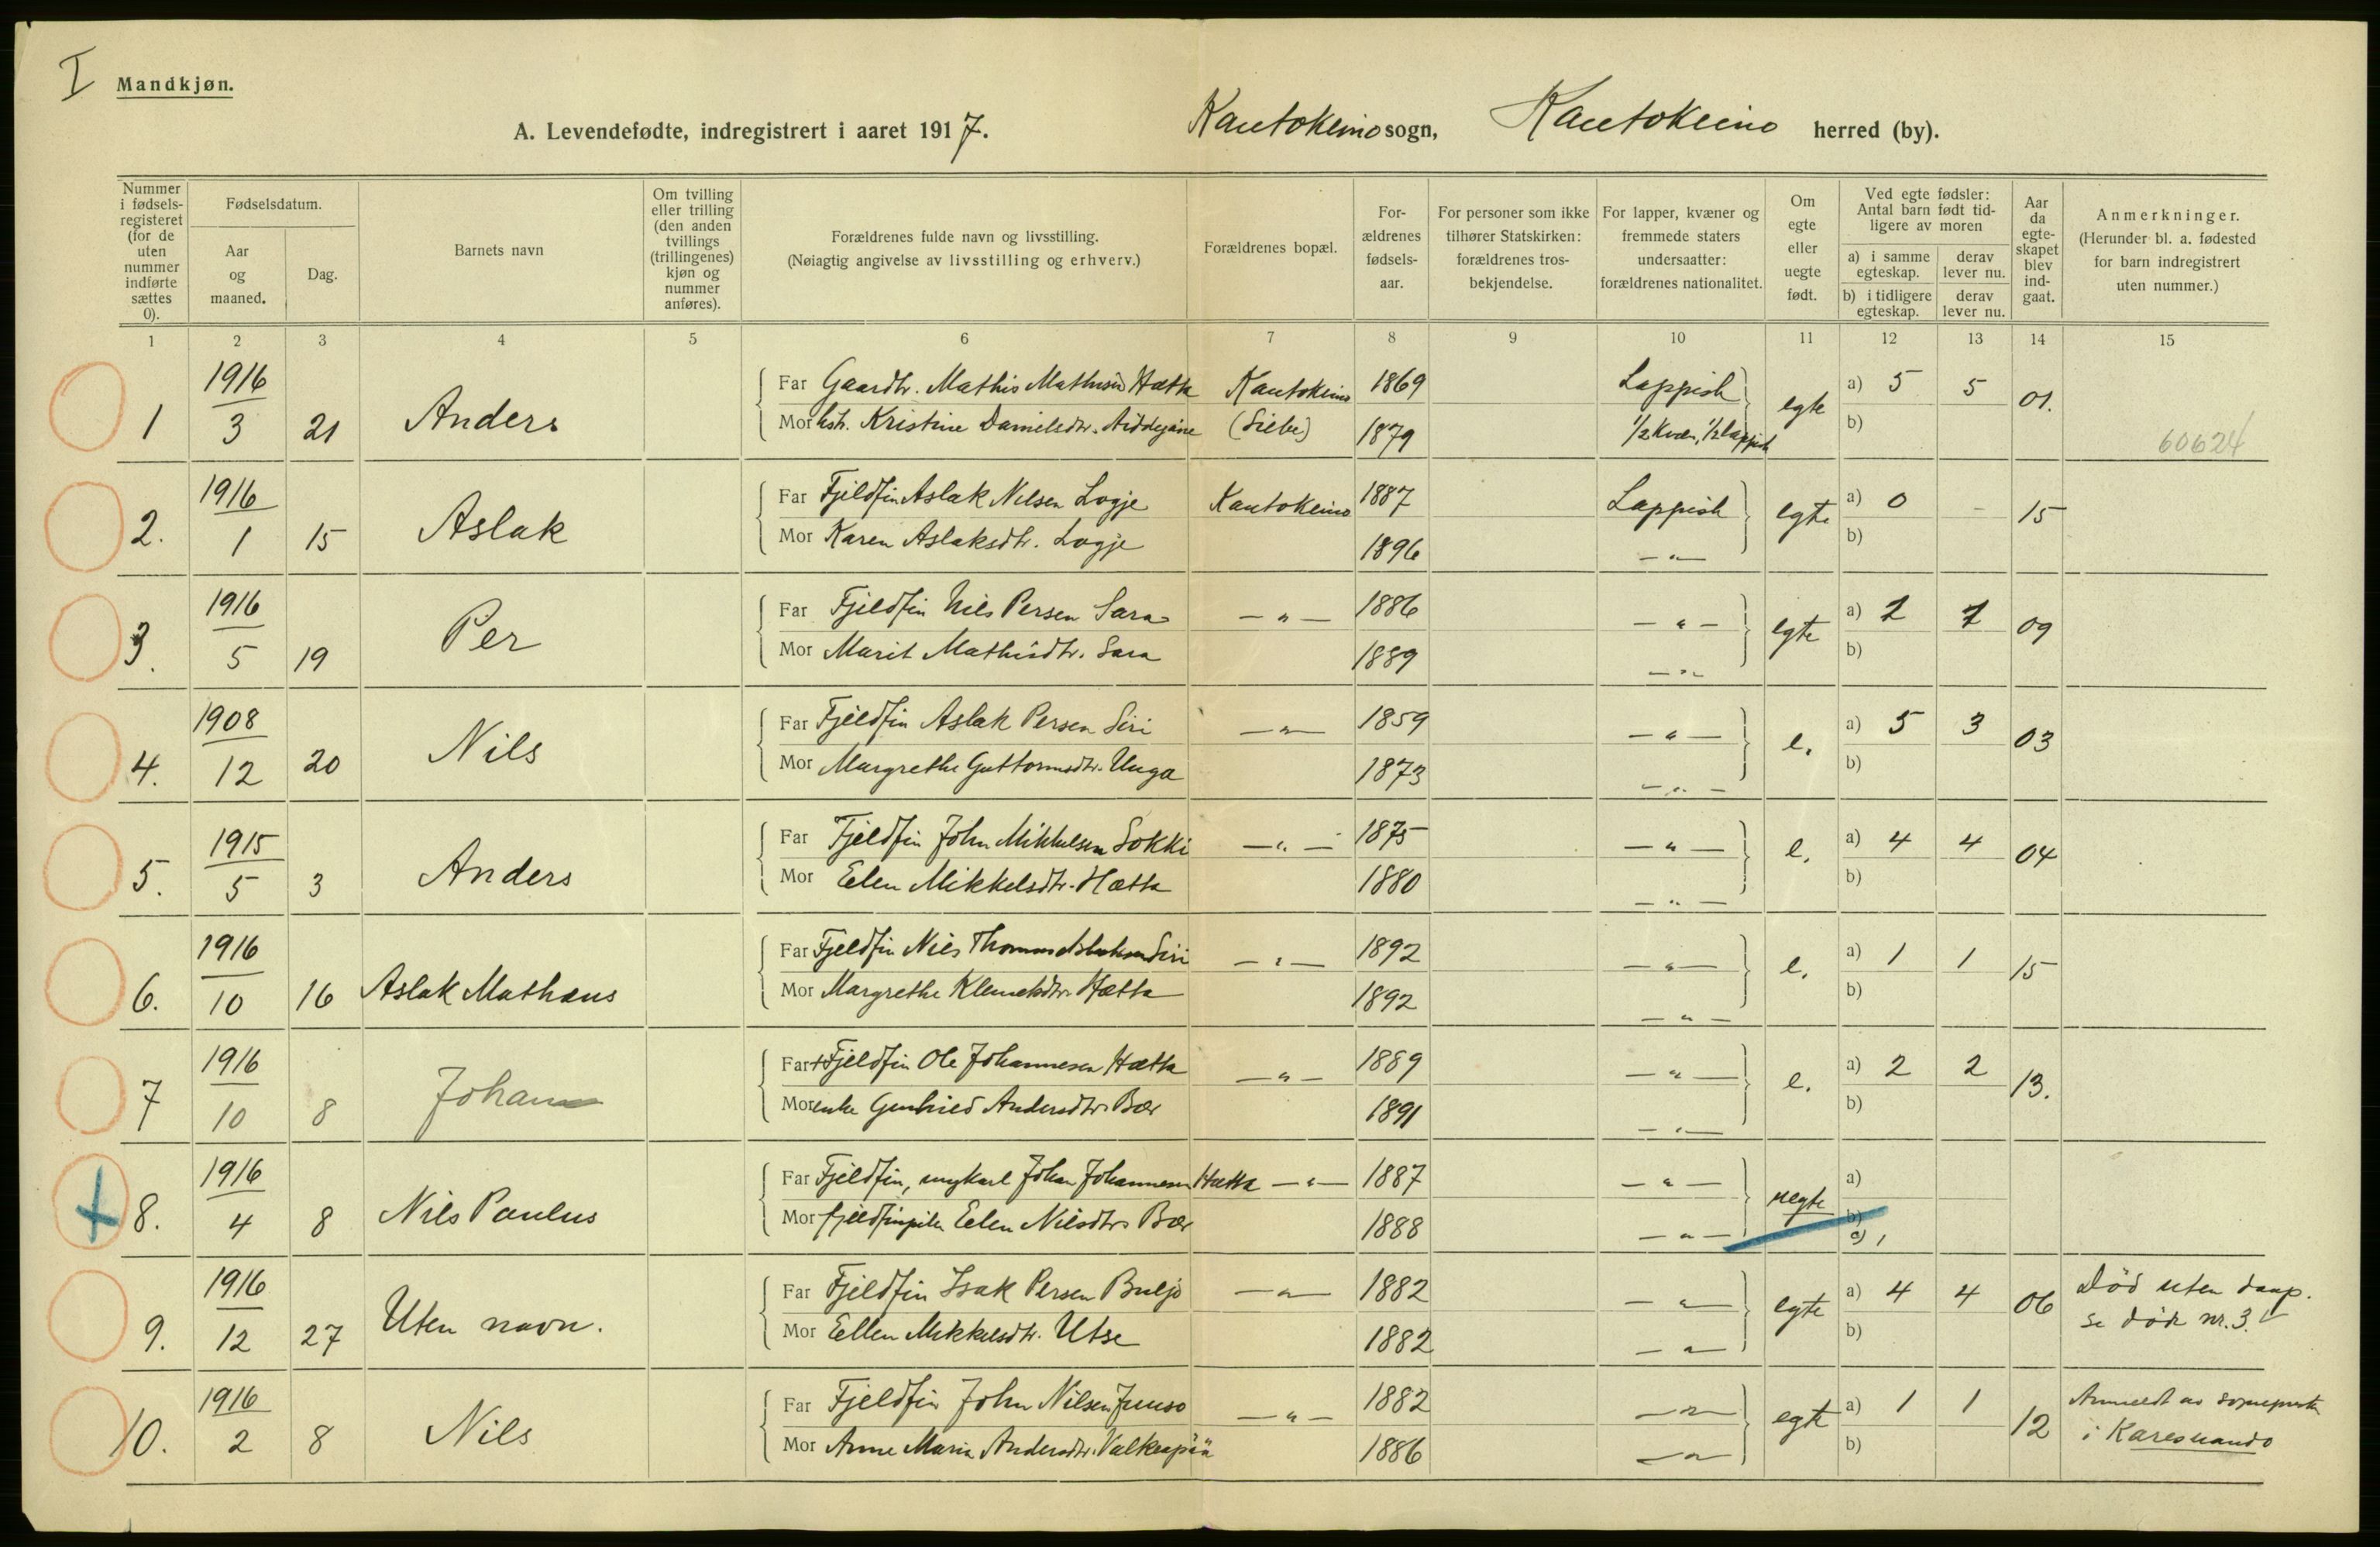 I Mandkjøn.
A. Levendefødte, indregistrert i aaret 1917. Kautokeino sogn, Kautokeino herred (by).
Nummer i fødsels-registeret (for de uten nummer indførte sættes 0).
Fødselsdatum.
Aar og maaned.
Dag.
Barnets navn
Om tvilling eller trilling (den anden tvillings (trillingenes) kjøn og nummer anføres).
Forældrenes fulde navn og livsstilling.
(Nøiagtig angivelse av livsstilling og erhverv.)
Forældrenes bopæl.
For-ældrenes fødsels-aar.
For personer som ikke tilhører Statskirken: forældrenes tros-bekjendelse.
For lapper, kvæner og fremmede staters undersaatter: forældrenes nationalitet.
Om egte eller uegte født.
Ved egte fødsler: Antal barn født tid-ligere av moren
a) i samme egteskap. derav lever nu.
b) i tidligere egteskap. derav lever nu.
Aar da egte-skapet blev ind-gaat.
Anmerkninger.
(Herunder bl. a. fødested for barn indregistrert uten nummer.)
1 2 3 4 5 6 7 8 9 10 11 12 13 14 15
1916 Far Gaardbr. Mathis Mathisen Hætta Kautokeino 1869 Lappisk a) 5 5
1 3 21 Anders Mor hstr. Kristine Danielsdtr. (Siebe) 1879 1/2 Kvæn, 1/2 lappisk egte b) 01.
60624
1916 Far Fjeldfin Aslak Nilsen Logje Kautokeino 1887 Lappisk a) 0 -
2. 1 15 Aslak Mor Karen Aslaksdtr. Logje 1896 — " — egte b) 15
1916 Far Fjeldfin Nils Persen Sara — " — 1886 — " — a) 2 1
3. 5 19 Per Mor Marit Mathisdtr. Sara 1889 — " — egte b) 09
1908 Far Fjeldfin Aslak Persen Siri — " — 1859 — " — a) 5 3
4. 12 20 Nils Mor Margrethe Guttormsdtr. Unga 1873 — " — e. b) 03
1915 Far Fjeldfin John Mikkelsen Sokki — " — 1875 — " — a) 4 4
5. 5 3 Anders Mor Elen Mikkelsdtr. Hætta 1880 — " — e. b) 04
1916 Far Fjeldfin Nils Thomas Aslaksen Siri — " — 1892 — " — a) 1 1
6. 10 16 Aslak Mathæus Mor Margrethe Klemetsdtr. Hætta 1892 — " — e. b) 15
1916 Far + Fjeldfin Ole Johannesen Hætta — " — 1889 — " — a) 2 2
7 10 8 Johan Mor enke Andersdtr. Bær 1891 — " — e. b) 13.
1916 Far Fjeldfin, ungkarl Johan Johannesen Hætta — " — 1887 — " — a)
8. 4 8 Nils Paulus Mor fjeldfinpike Elen Nilsdtr. Bær 1888 — " — uegte b)
c) 1
1916 Far Fjeldfin Isak Persen Buljo — " — 1882 — " — a) 4 4 Død uten daap.
9. 12 27 Uten navn. Mor Ellen Mikkelsdtr. Utse 1882 — " — egte b) 06 se døde nr. 3.
1916 Far Fjeldfin John Nilsen Juuso — " — 1882 — " — a) 1 1 Anmeldt av sogneprest
10. 2 8 Nils Mor Anne Maria Andersdtr. Valkeapää 1886 — " — egte b) 12 i Karesuando